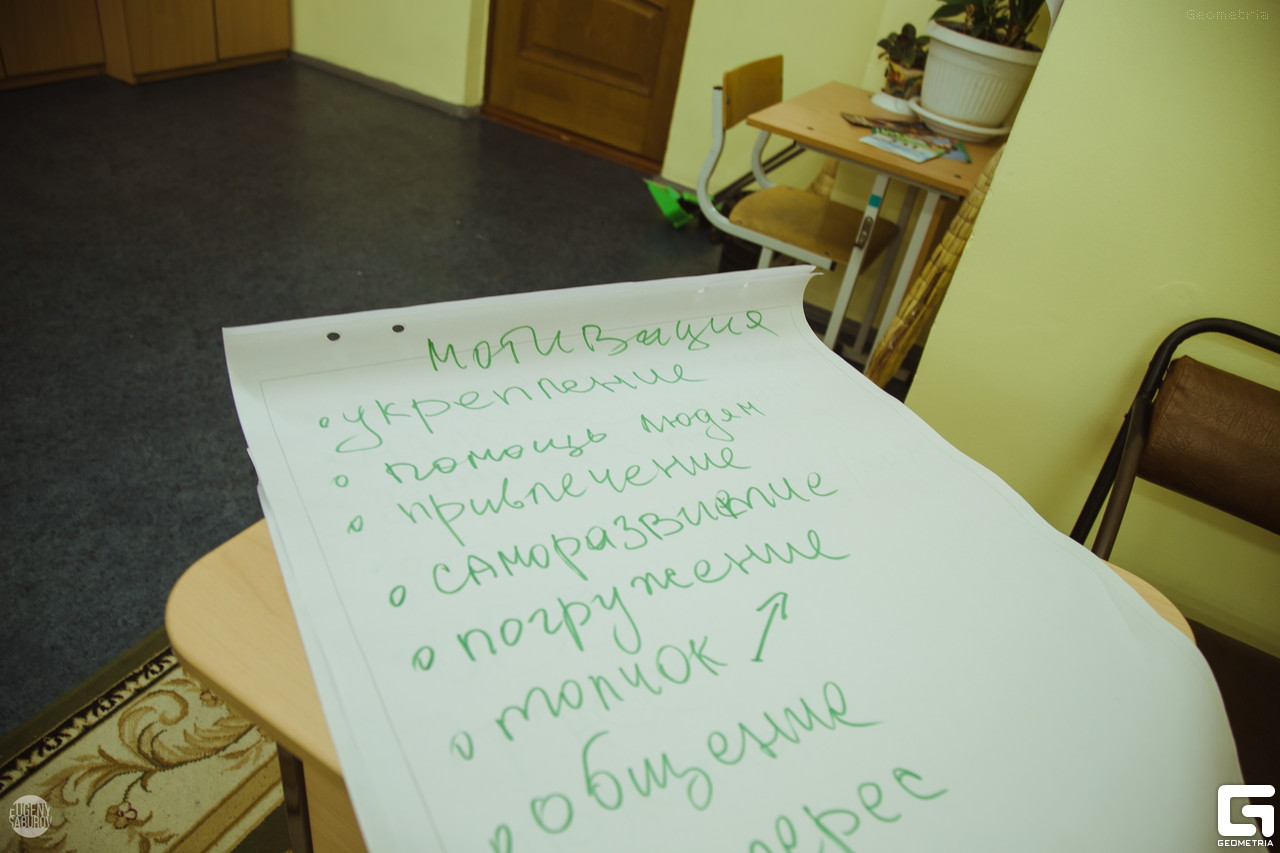 Geometria
мотивация
укрепление
помощь людям
привлечение
саморазвитие
погружение
толчок ↗
общение
ерес
EUGENY
SABUROV
GEOMETRIA